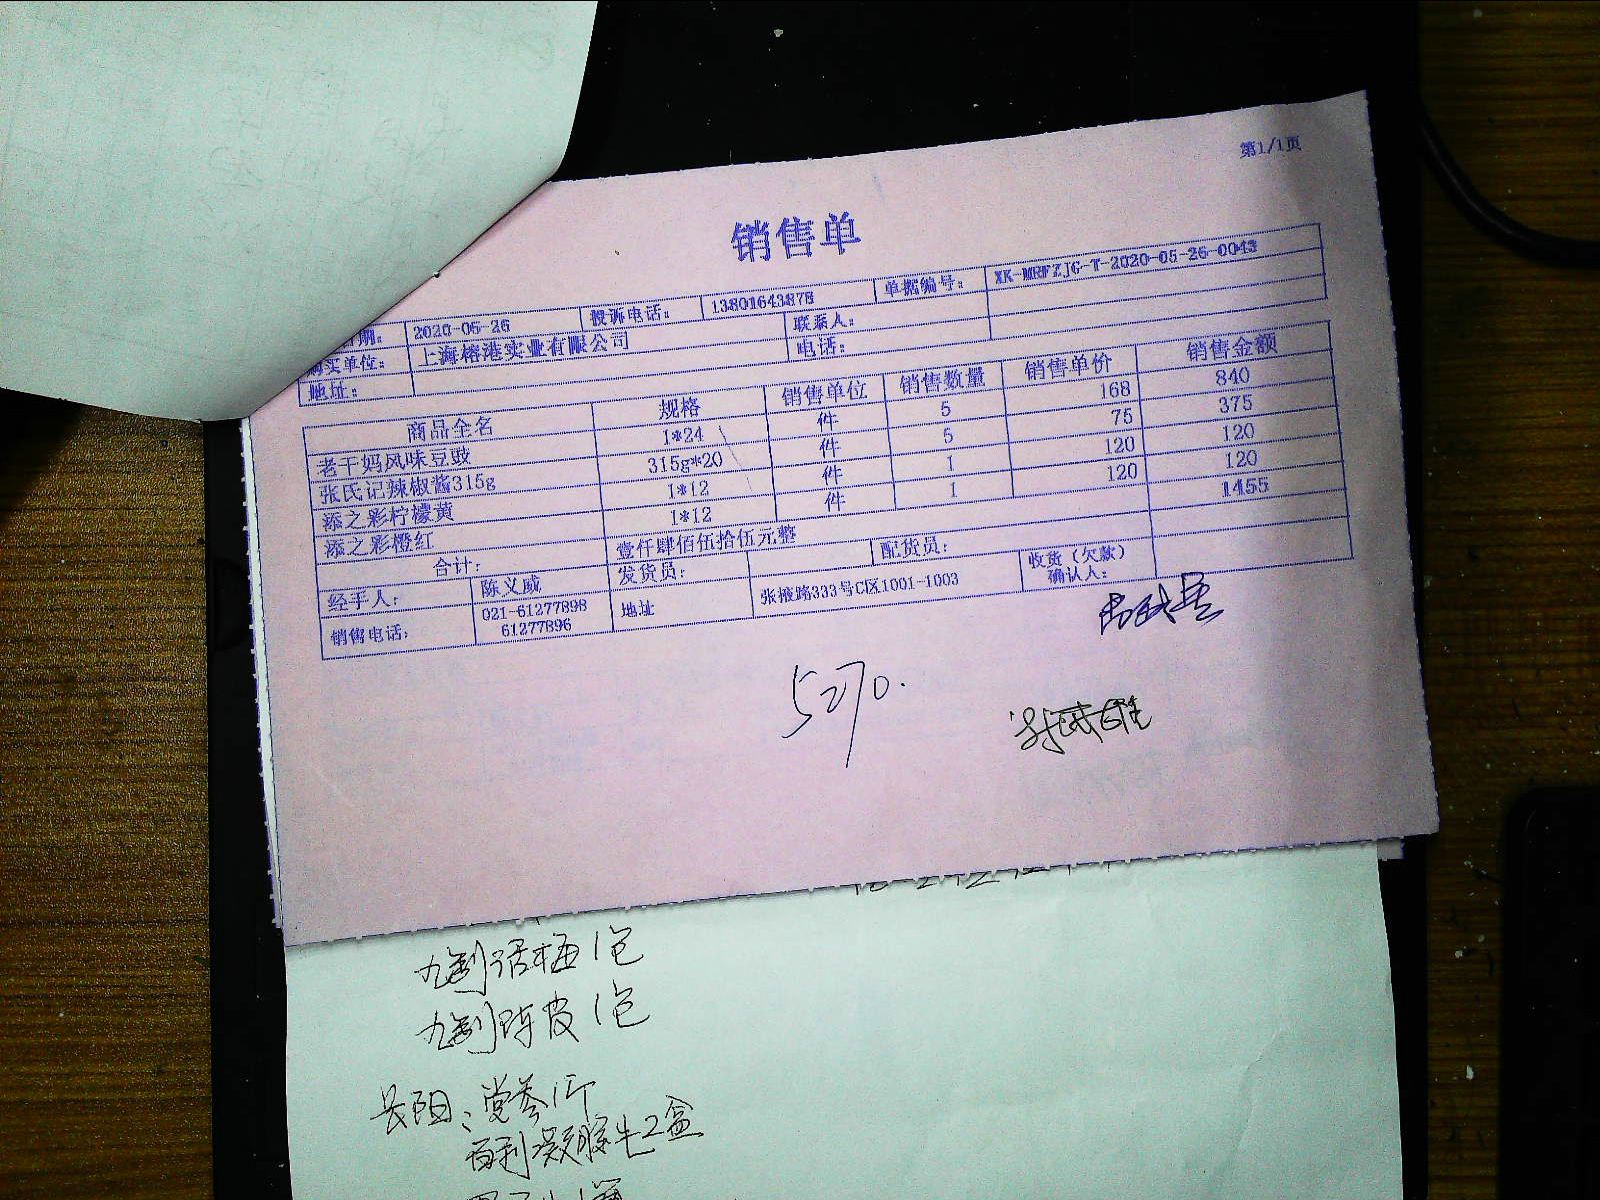 第1/1页
销售单
日期: 2020-05-26 投诉电话: 13801643878 单据编号: XK-MRFZJG-T-2020-05-26-0043
购买单位: 上海榕港实业有限公司 联系人:
地址: 电话:
商品全名 规格 销售单位 销售数量 销售单价 销售金额
老干妈风味豆豉 1*24 件 5 168 840
张氏记辣椒酱315g 315g*20 件 5 75 375
添之彩柠檬黄 1*12 件 1 120 120
添之彩橙红 1*12 件 1 120 120
合计: 壹仟肆佰伍拾伍元整 1455
经手人: 陈义威 发货员: 配货员: 收货（欠款）确认人:
销售电话: 021-61277898 61277896 地址 张掖路333号C区1001-1003
5270.
九制话梅1包
九制陈皮1包
长阳: 党参1斤
百利凝胶片2盒